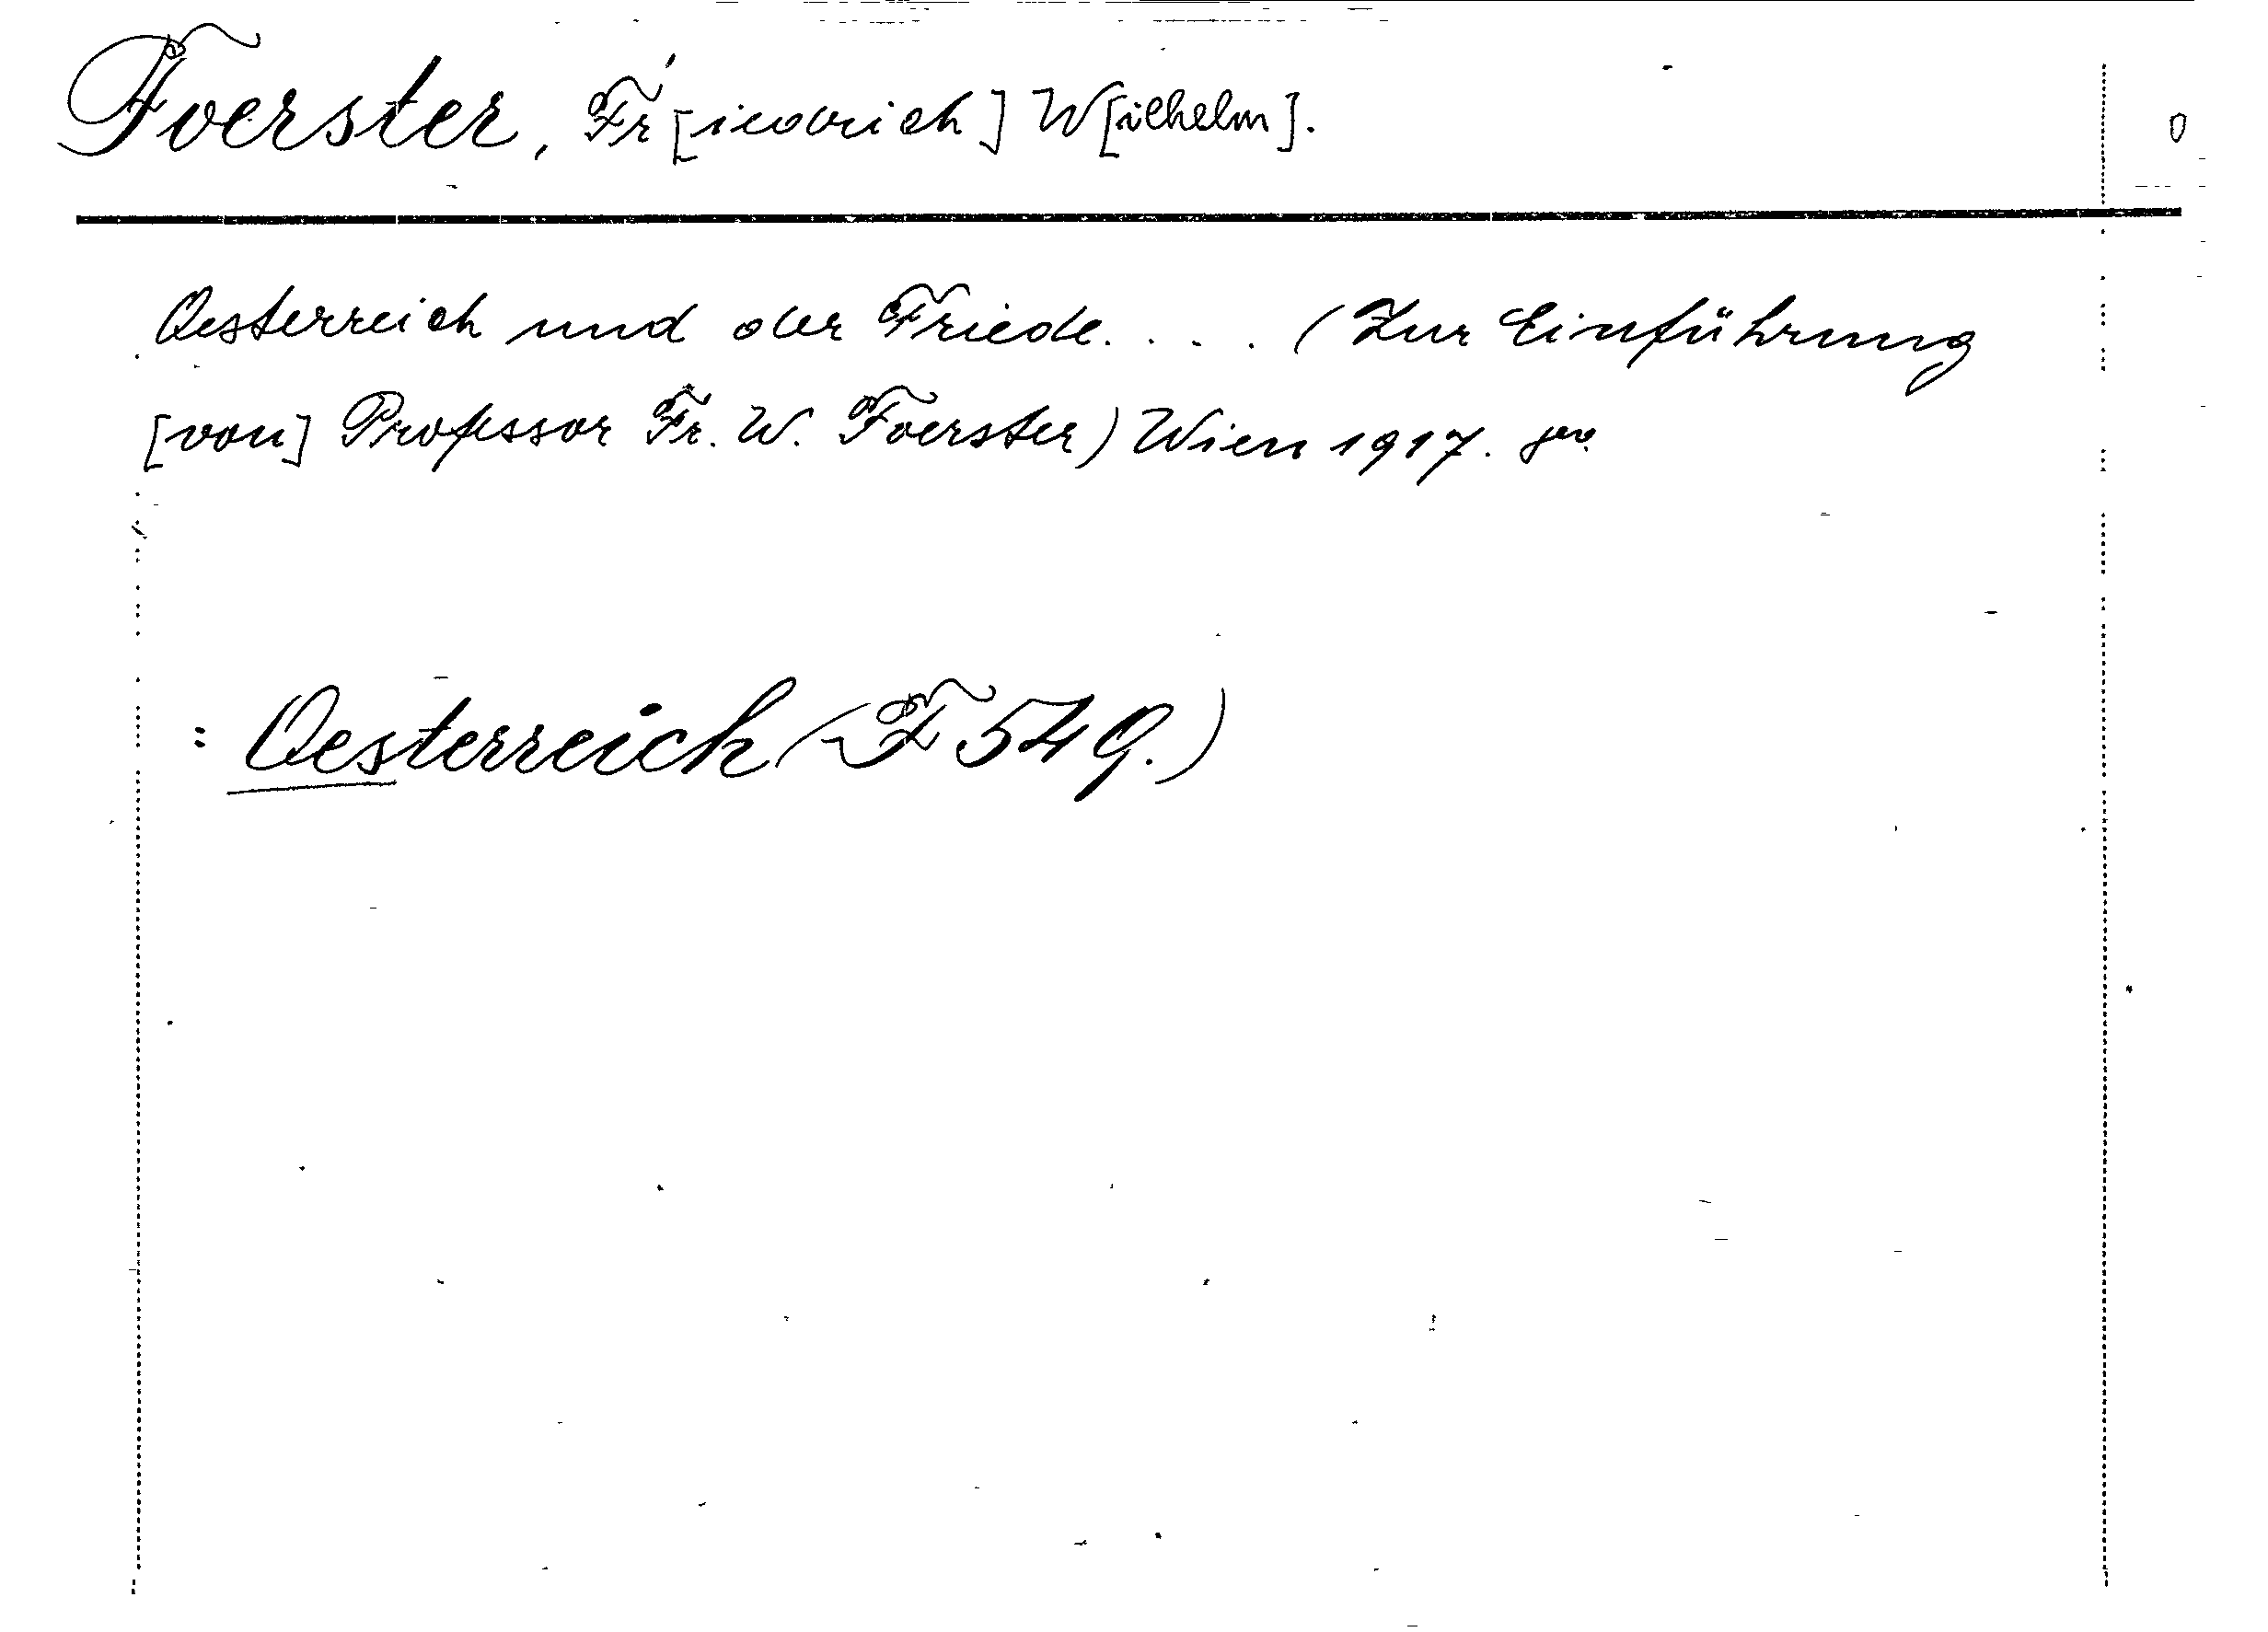 Foerster, Fr[iedrich] W[ilhelm].
0
Oesterreich und der Friede. . . . (Zur Einführung
[von] Professor Fr. W. Foerster) Wien 1917.
: Oesterreich (F 549.)